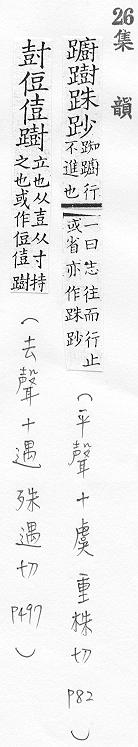 26
集韻
躕𨅒跦跢踟躕行不進也一曰㤀往而行止或省亦作跦跢
（平聲十虞重株切P82）
尌侸僖𨄔立也从壴从寸持之也或作侸僖𨄔
（去聲十遇殊遇切P497）